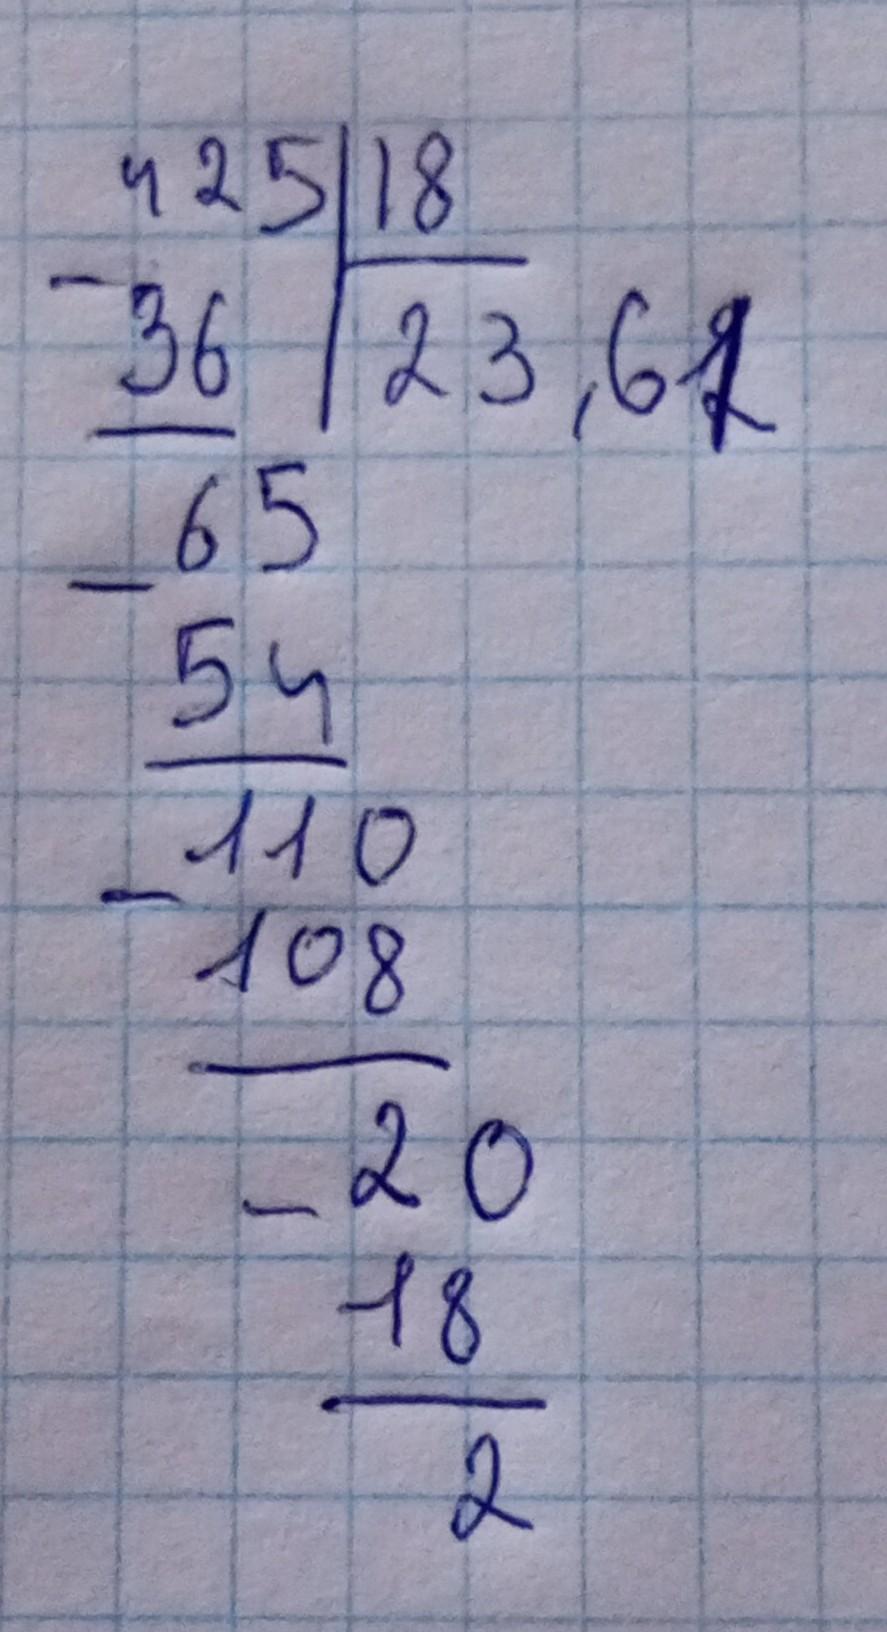 425|18
- 36 23,61
- 65
54
- 110
108
- 20
18
2